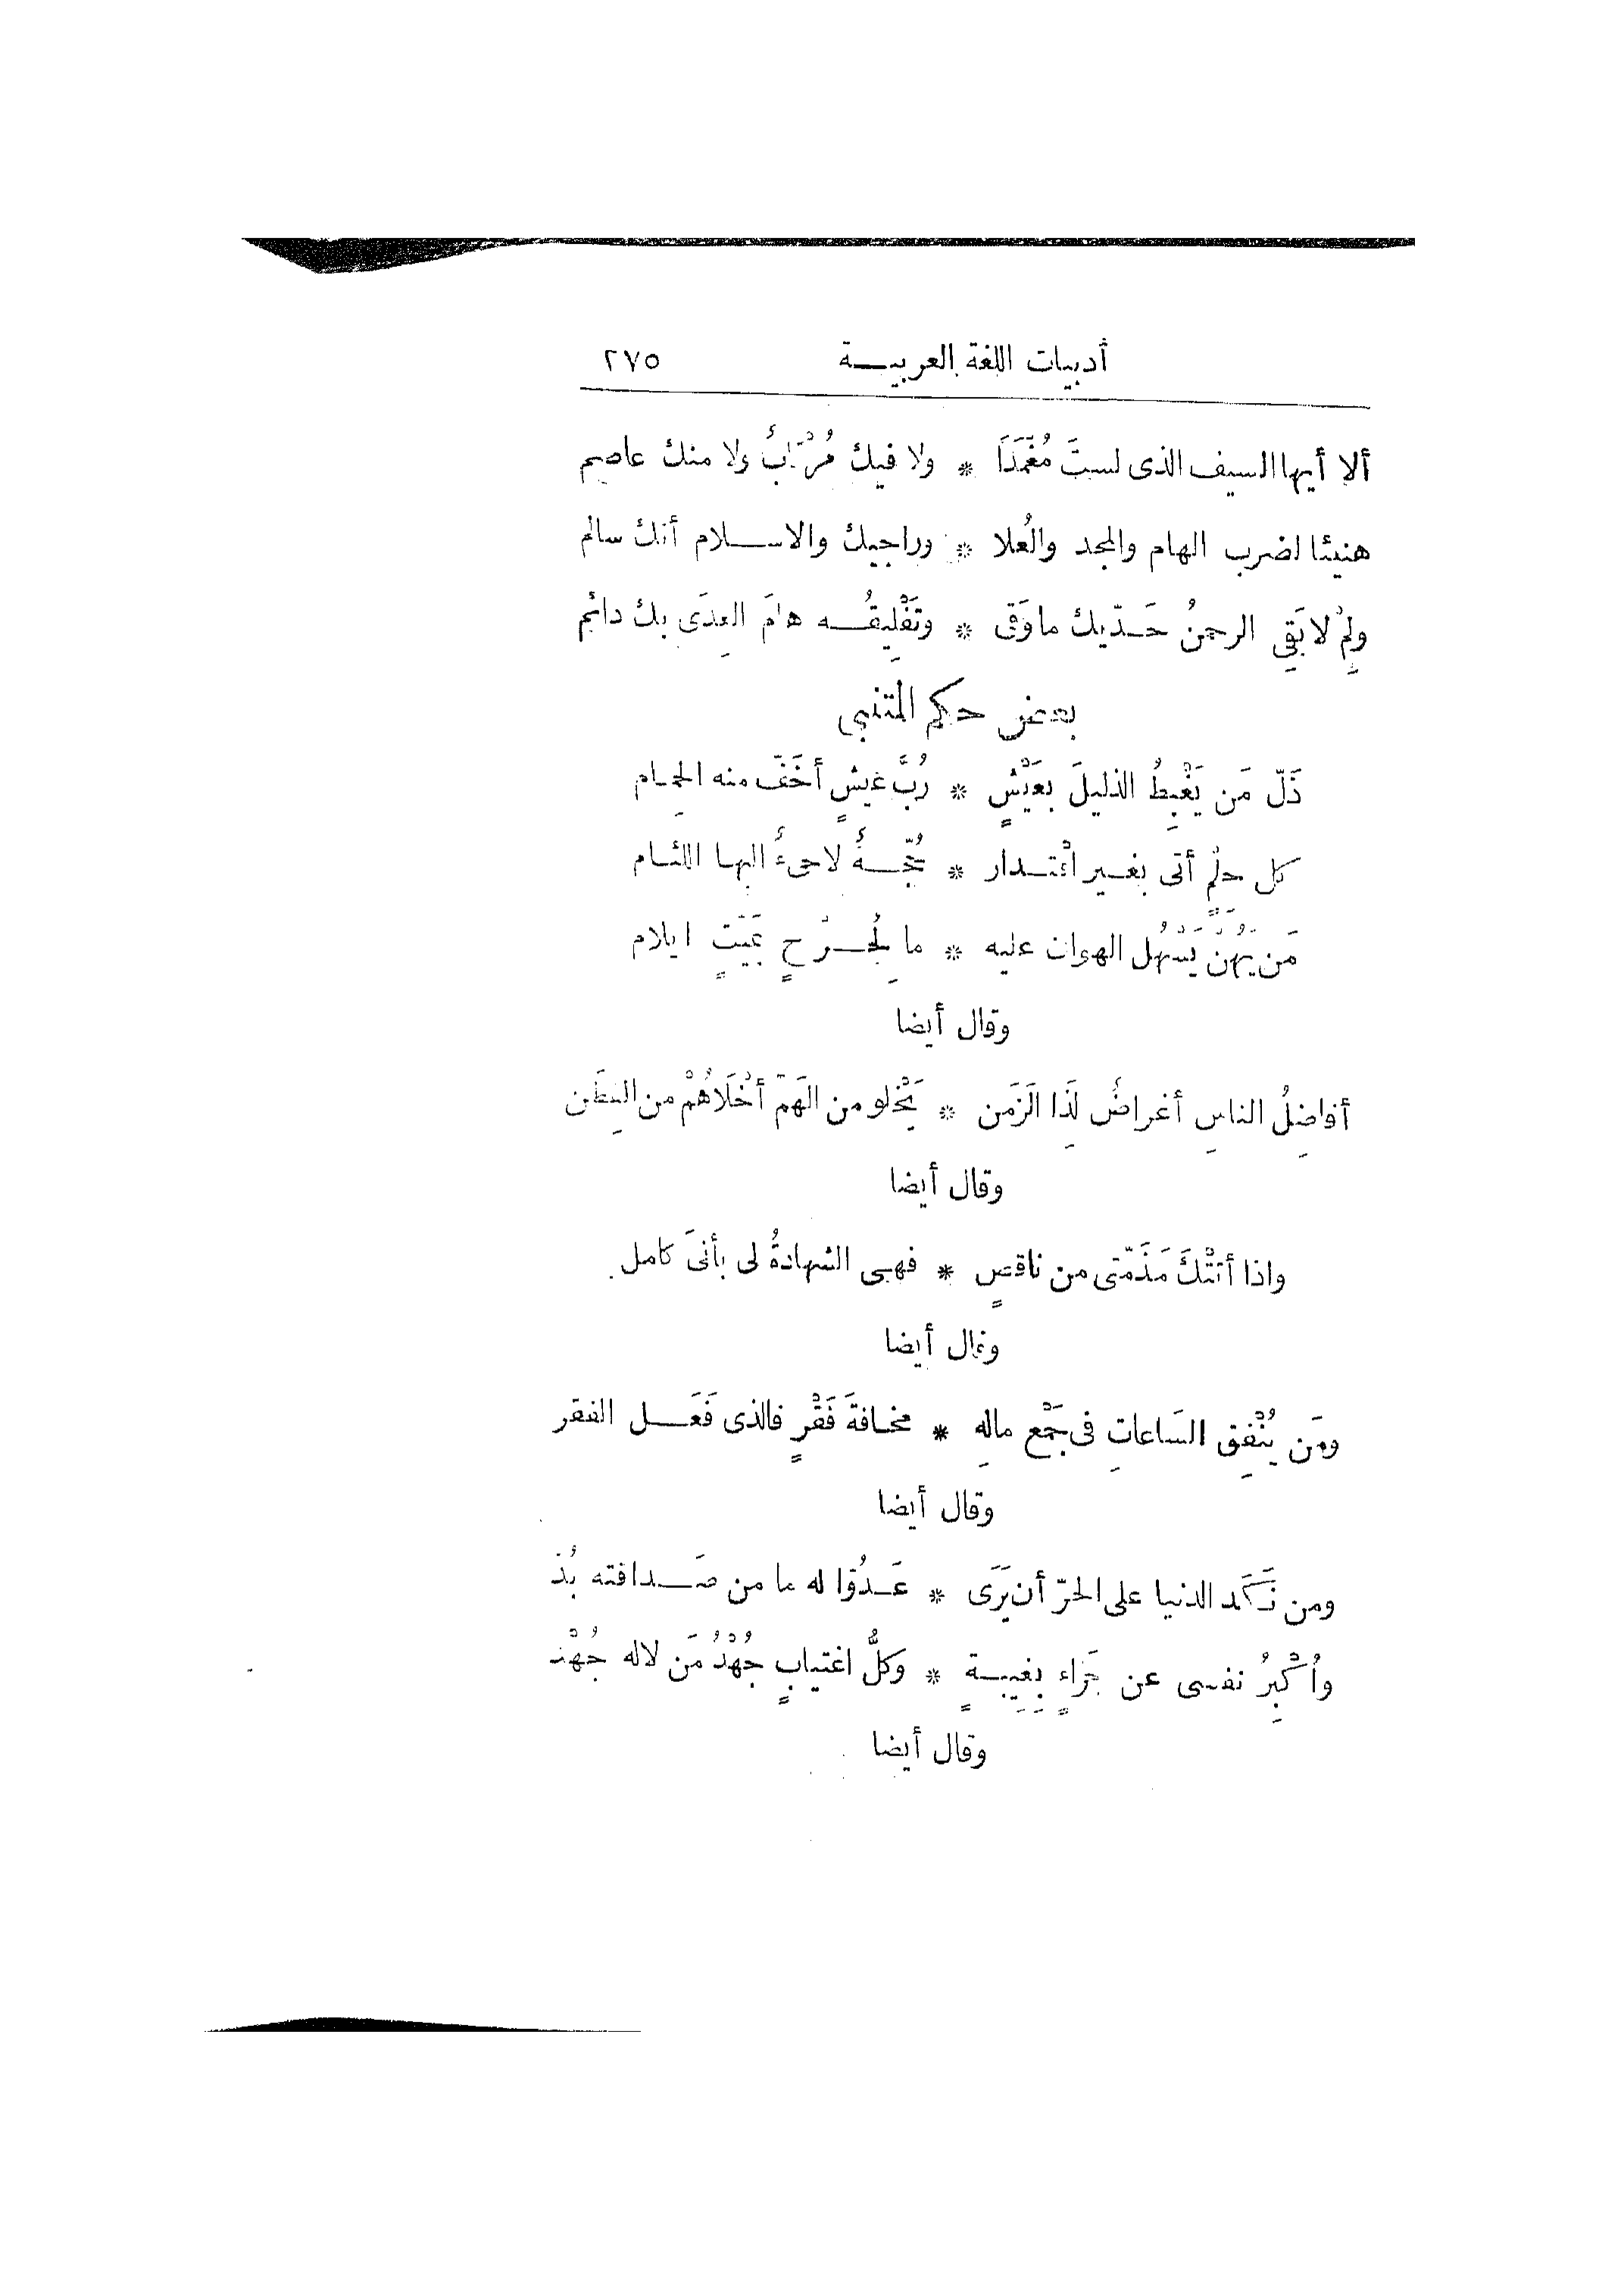 أدبيات اللغة العربيـــة ٢٧٥
ألا أيها السيف الذى لستَ مُغْمَدًا * ولا فيك مُرْتابٌ ولا منك عاصم
هنيئا لضرب الهام والمجد والعُلا * وراجيك والاســـلام أنك سالم
ولِمْ لا يَقِى الرحمنُ حَـدّيك ما وَقَى * وتَفْلِيقُـــه هامَ العِدَى بك دائم
بعض حكم المتنبى
ذَلّ مَن يَغْبِطُ الذليلَ بعَيْشٍ * رُبَّ عَيشٍ أخَفّ منه الحِمـام
كل حلْمٍ أتى بغـير اقْتـدار * حُجّـــةٌ لاجئٌ اليهـا اللئـام
مَن يَهُنْ يَسْهُل الهوان عليه * ما لِجُـــرْحٍ بَمَيّتٍ ايلام
وقال أيضا
أفاضِلُ الناسِ أغراضٌ لِذَا الزَمَن * يَخْلو من الهَمّ أخْلَاهُمْ من الفِطَن
وقال أيضا
واذا أتَتْكَ مَذَمّتى من ناقصٍ * فهـى الشهادةُ لى بأنىَ كامل.
وقال أيضا
ومَن يُنْفِق السَاعاتِ فى جَمْعِ مالِه * مخـافةَ فَقْرٍ فالذى فَعَـــل الفقر
وقال أيضا
ومن نَـكَد الدنيا على الحرّ أن يَرَى * عَـدُوّا له ما من صَـــداقته بُدّ
وأُكْبِرُ نفسى عن جَزاءٍ بِغِيبـةٍ * وكلُّ اغتيابٍ جُهْدُ مَن لا له جُهْد
وقال أيضا